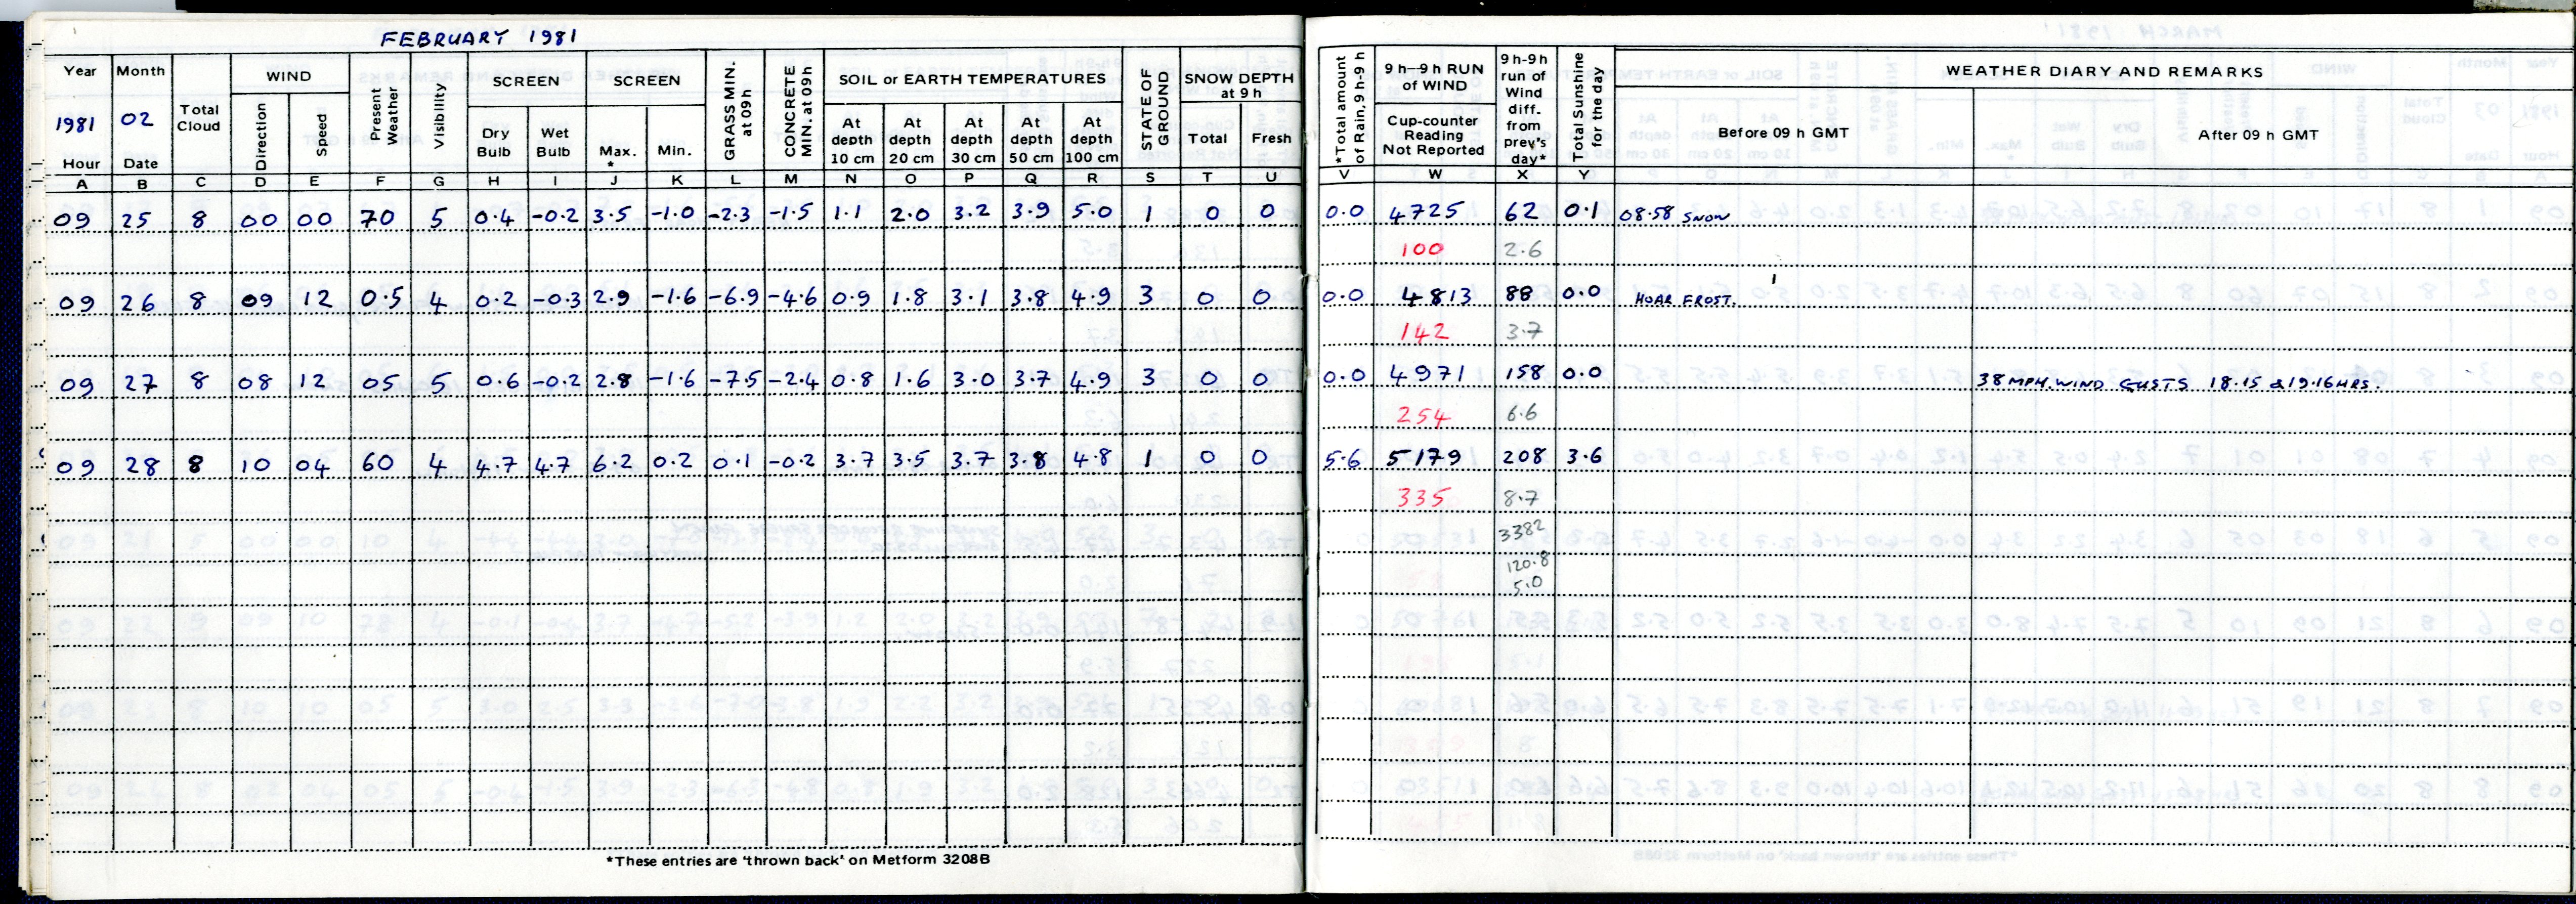 FEBRUARY 1981
Year Month Total Cloud WIND Present Weather Visibility SCREEN SCREEN GRASS MIN. at 09h CONCRETE MIN. at 09h SOIL or EARTH TEMPERATURES STATE OF GROUND SNOW DEPTH at 9 h *Total amount of Rain, 9 h-9 h 9 h–9 h RUN of WIND 9 h-9 h run of Wind diff. from prev's day* Total Sunshine for the day WEATHER DIARY AND REMARKS
1981 02 Direction Speed Dry Bulb Wet Bulb Max. * Min. At depth 10 cm At depth 20 cm At depth 30 cm At depth 50 cm At depth 100 cm Total Fresh Cup-counter Reading Not Reported Before 09 h GMT After 09 h GMT
Hour Date
A B C D E F G H I J K L M N O P Q R S T U V W X Y
09 25 8 00 00 70 5 0.4 -0.2 3.5 -1.0 -2.3 -1.5 1.1 2.0 3.2 3.9 5.0 1 0 0 0.0 4725 62 0.1 08.58 SNOW
100 2.6
09 26 8 09 12 0.5 4 0.2 -0.3 2.9 -1.6 -6.9 -4.6 0.9 1.8 3.1 3.8 4.9 3 0 0 0.0 4813 88 0.0 HOAR FROST.
142 3.7
09 27 8 08 12 05 5 0.6 -0.2 2.8 -1.6 -7.5 -2.4 0.8 1.6 3.0 3.7 4.9 3 0 0 0.0 4971 158 0.0 38 MPH. WIND GUSTS 18.15 & 19.16 HRS.
254 6.6
09 28 8 10 04 60 4 4.7 4.7 6.2 0.2 0.1 -0.2 3.7 3.5 3.7 3.8 4.8 1 0 0 5.6 5179 208 3.6
335 8.7
3382
120.8
5.0
*These entries are 'thrown back' on Metform 3208B